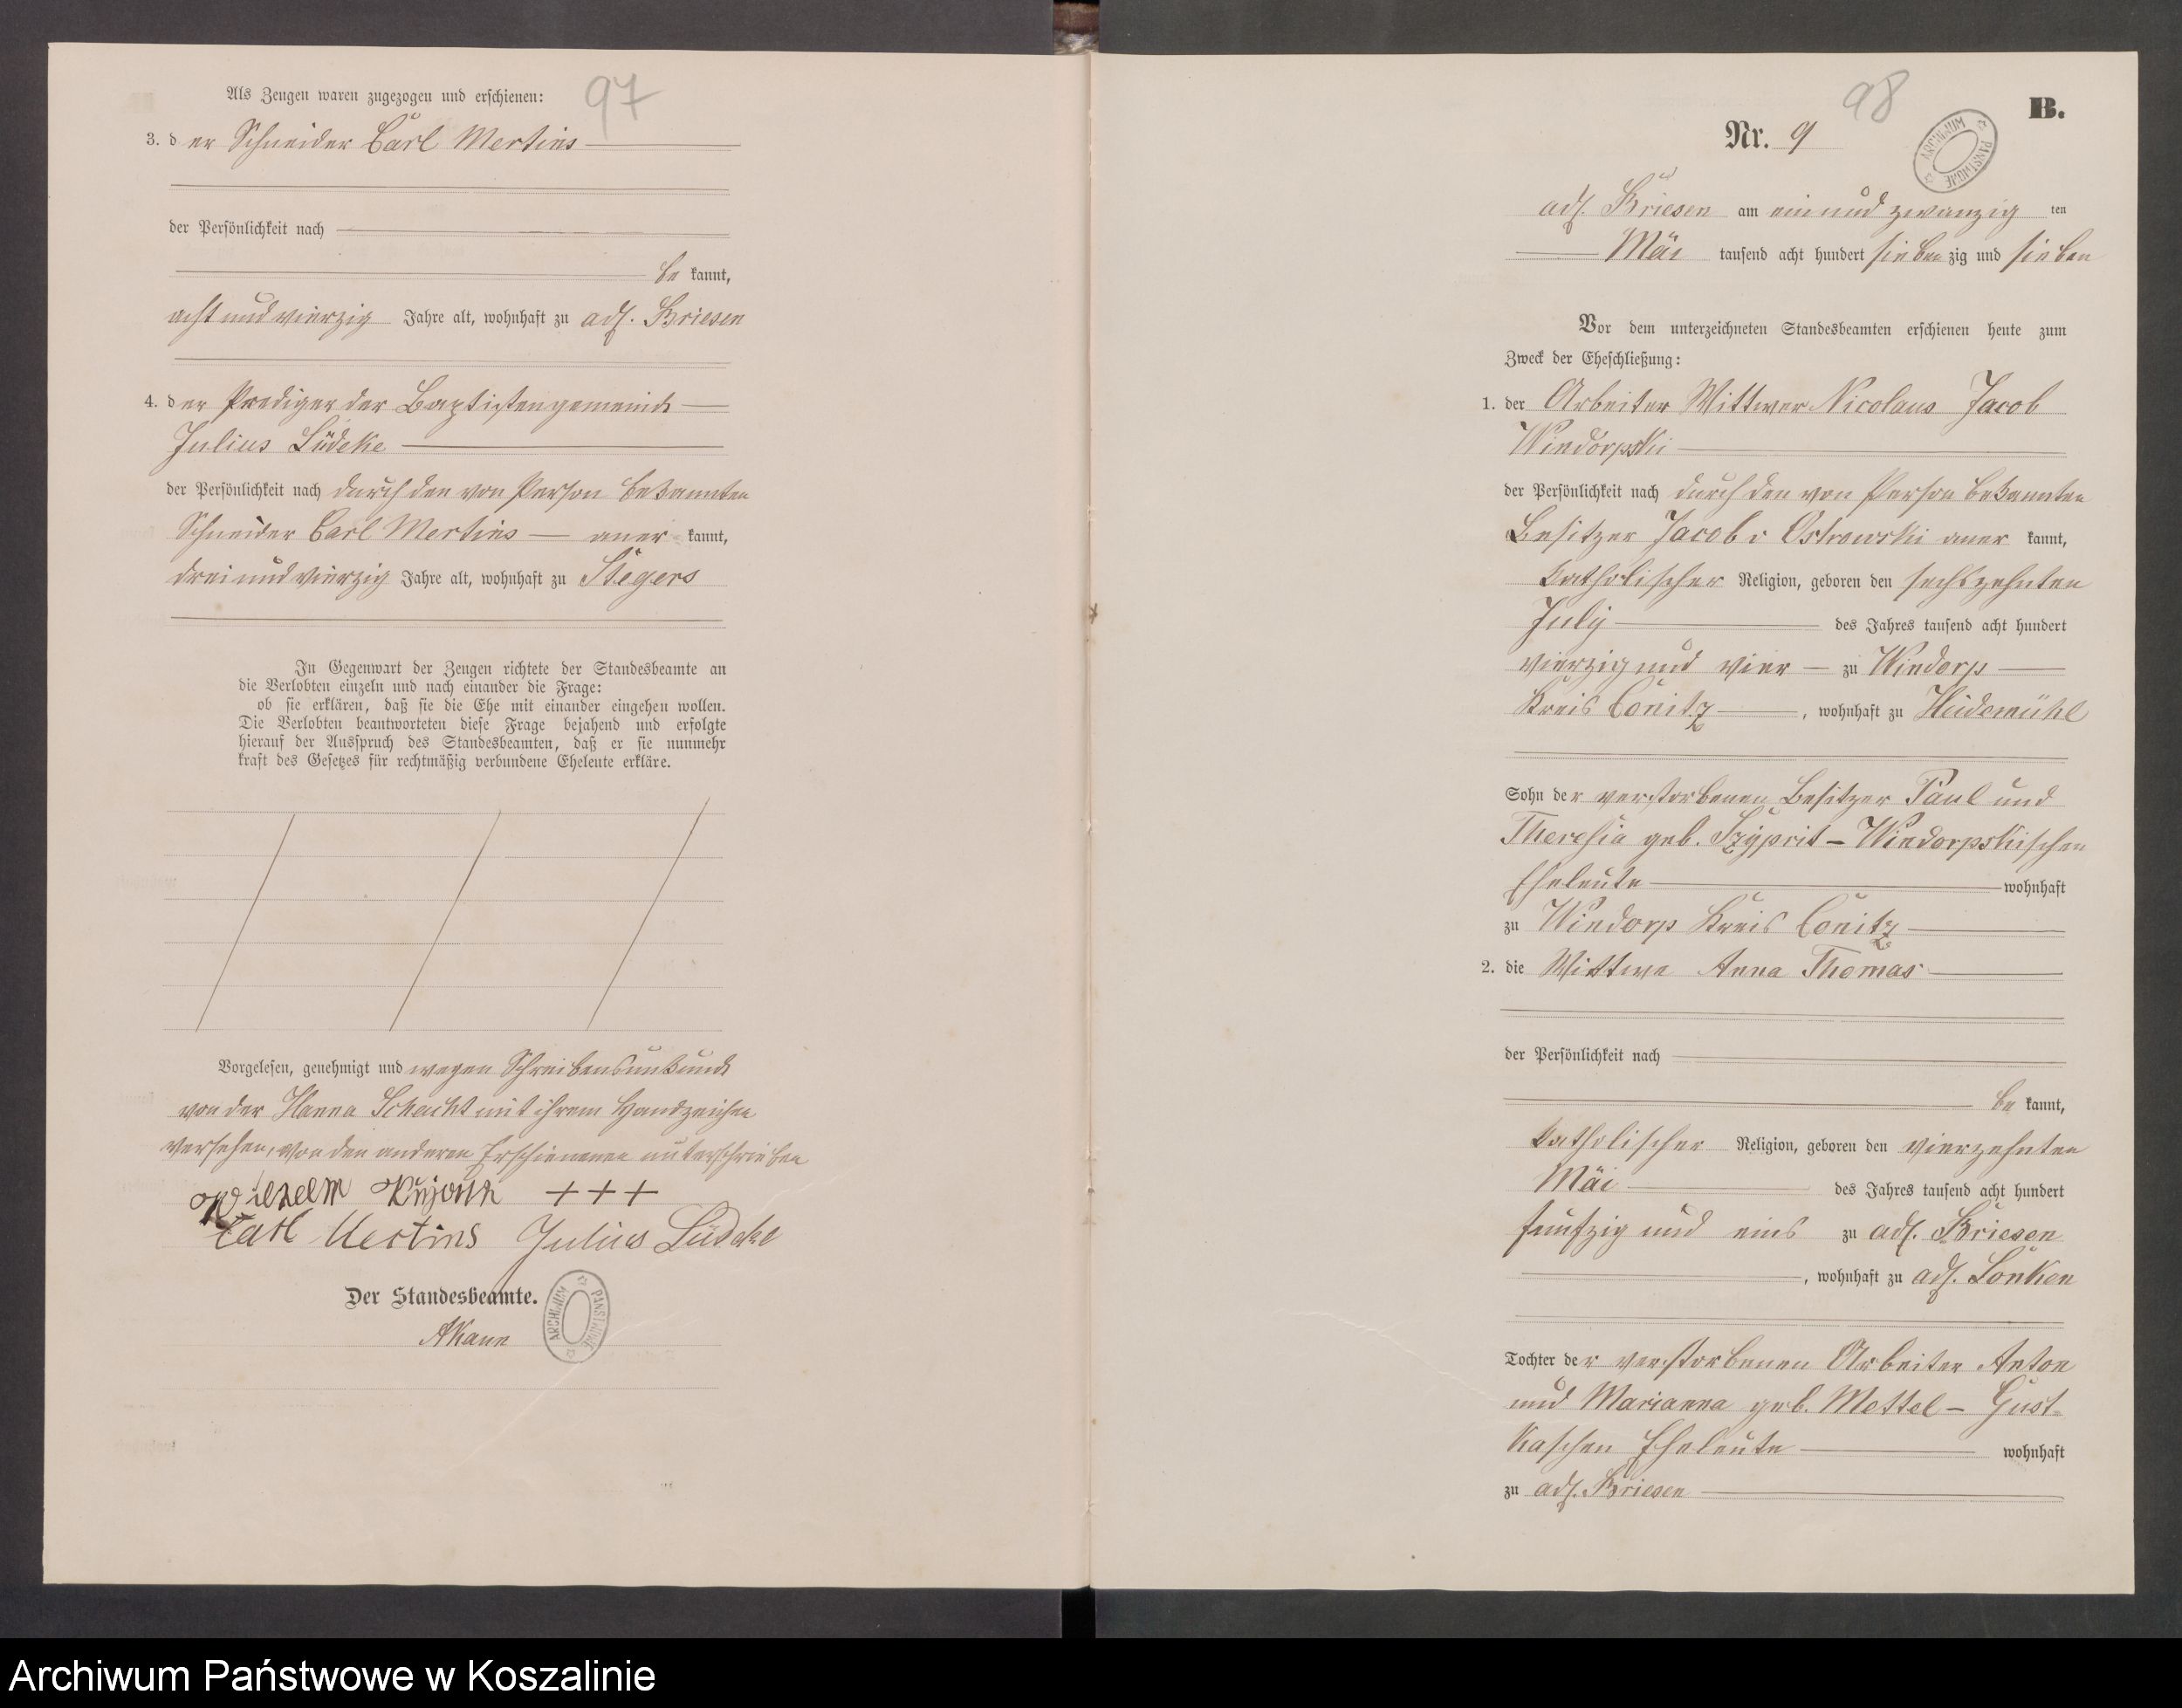 Als Zeugen waren zugezogen und erschienen:
97
3. der Schneider Carl Mertins
der Persönlichkeit nach
be kannt,
acht und vierzig Jahre alt, wohnhaft zu adl. Briesen
4. der Prediger der Baptistengemeinde
Julius Lüdeke
der Persönlichkeit nach durch den von Person bekannten
Schneider Carl Mertins aner kannt,
drei und vierzig Jahre alt, wohnhaft zu Stegers
In Gegenwart der Zeugen richtete der Standesbeamte an
die Verlobten einzeln und nach einander die Frage:
ob sie erklären, daß sie die Ehe mit einander eingehen wollen.
Die Verlobten beantworteten diese Frage bejahend und erfolgte
hierauf der Ausspruch des Standesbeamten, daß er sie nunmehr
kraft des Gesetzes für rechtmäßig verbundene Eheleute erkläre.
Vorgelesen, genehmigt und wegen Schreibensunkunde
von der Hanna Schacht mit ihrem Handzeichen
versehen, von den anderen Erschienenen unterschrieben
Wilhelm +++
Carl Mertins Julius Lüdeke
Der Standesbeamte.
AKann
ARCHIWUM PAŃSTWOWE
98
B.
Nr. 9
ARCHIWUM PAŃSTWOWE
adl. Briesen am ein und zwanzig ten
Mai tausend acht hundert sieben zig und sieben
Vor dem unterzeichneten Standesbeamten erschienen heute zum
Zweck der Eheschließung:
1. der Arbeiter Wittwer Nicolaus Jacob
Windorpski
der Persönlichkeit nach durch den von Person bekannten
Besitzer Jacob v Ostrowski aner kannt,
katholischer Religion, geboren den sechszehnten
July des Jahres tausend acht hundert
vierzig und vier zu Windorp
Kreis Conitz, wohnhaft zu Heidemühl
Sohn der verstorbenen Besitzer Paul und
Theresia geb. Windorpskischen
Eheleute wohnhaft
zu Windorp Kreis Conitz
2. die Wittwe Anna Thomas
der Persönlichkeit nach
be kannt,
katholischer Religion, geboren den vierzehnten
Mai des Jahres tausend acht hundert
funfzig und eins zu adl. Briesen
, wohnhaft zu adl. Lonken
Tochter der verstorbenen Arbeiter Anton
und Marianna geb. Mettel - Gust-
kaschen Eheleute wohnhaft
zu adl. Briesen
Archiwum Państwowe w Koszalinie